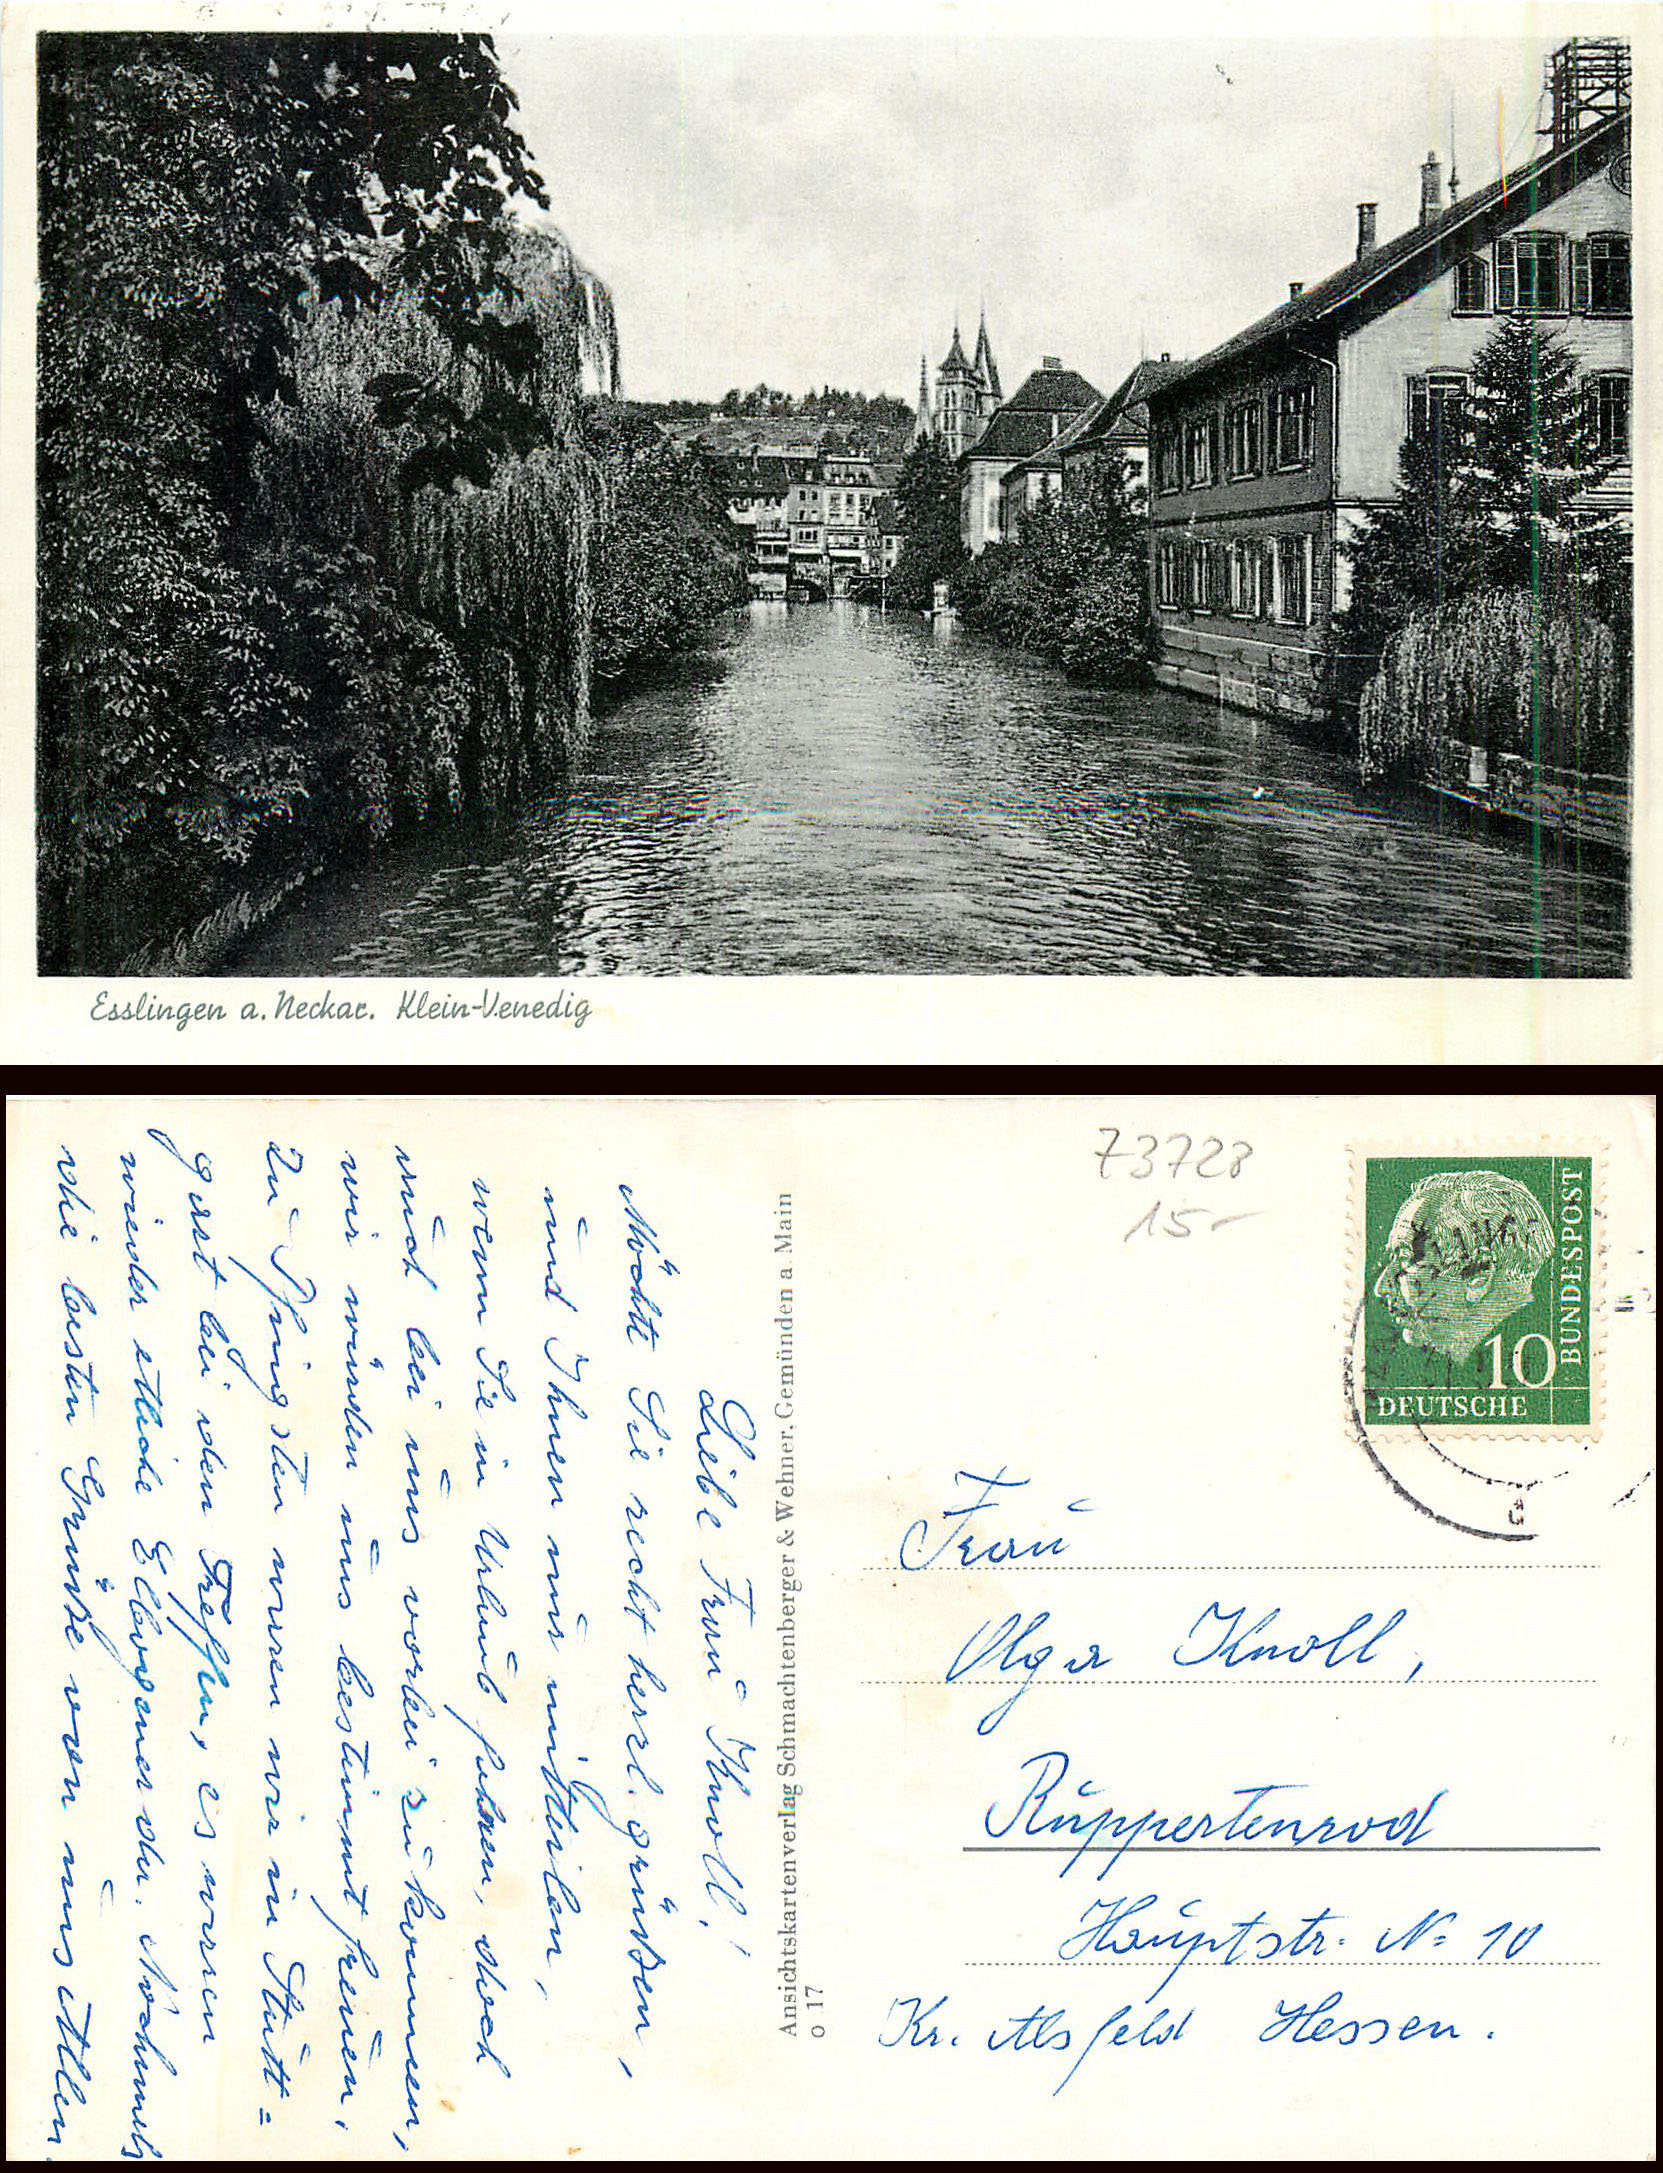 Esslingen a. Neckar. Klein-Venedig
73728
15-
10
DEUTSCHE
BUNDESPOST
Liebe Frau Knoll!
Möchte Sie recht herzl. grüßen,
und Ihnen nur mitteilen,
wenn Sie in Urlaub fahren, doch
auch bei uns vorbei zu kommen,
wir würden uns bestimmt freuen.
Zu Pfingsten waren wir in Stutt=
gart bei den Treffen, es waren
wieder etliche Elbogener da. Nochmals
die besten Grüße von uns Allen.
Ansichtskartenverlag Schmachtenberger & Wehner, Gemünden a Main
o 17
Frau
Olga Knoll,
Ruppertenrod
Hauptstr. N= 10
Kr. Alsfeld Hessen.